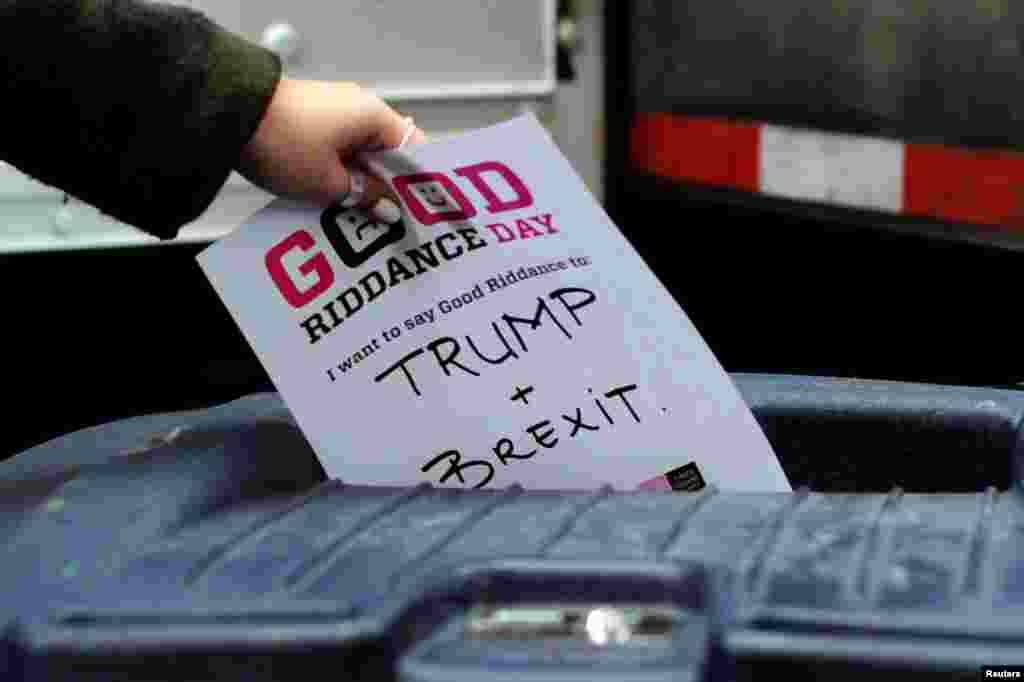 GOOD
RIDDANCE DAY
I want to say Good Riddance to:
TRUMP
+
BREXIT.
Reuters